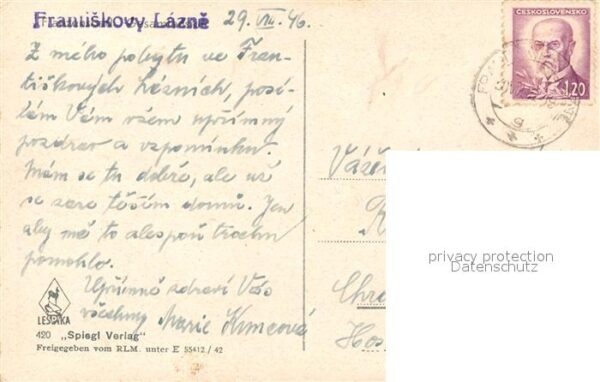 Františkovy Lázně 29. VIII. 46.
ČESKOSLOVENSKO
1.20
Z mého pobytu ve Fran-
tiškových Lázních, posí-
lám Vám všem upřímný
pozdrav a vzpomínku.
Mám se tu dobře, ale už
se zase těším domů. Jen
aby mě to alespoň trochu
pomohlo.
Upřímně zdraví Vás
všechny Marie
Váže
Chra
Hos
privacy protection
Datenschutz
LESKA
420 „Spiegl Verlag"
Freigegeben vom RLM. unter E 55412/42